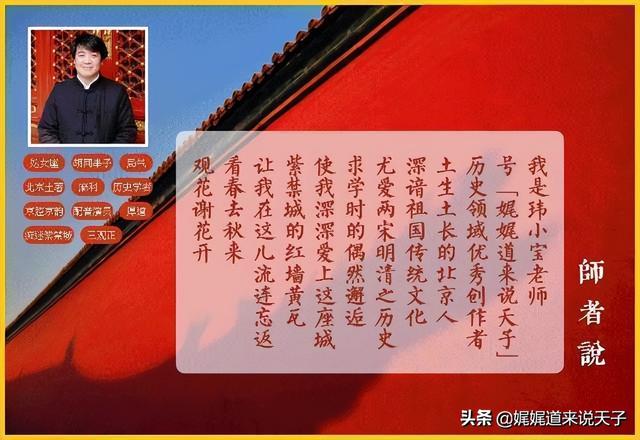 師者說
我是玮小宝老师
号「娓娓道来说天子」
历史领域优秀创作者
土生土长的北京人
深谙祖国传统文化
尤爱两宋明清之历史
求学时的偶然邂逅
使我深深爱上这座城
紫禁城的红墙黄瓦
让我在这儿流连忘返
看春去秋来
观花谢花开
处女座
胡同串子
局气
北京土著
历史学者
京腔京韵
配音演员
厚道
痴迷紫禁城
三观正
头条 @娓娓道来说天子